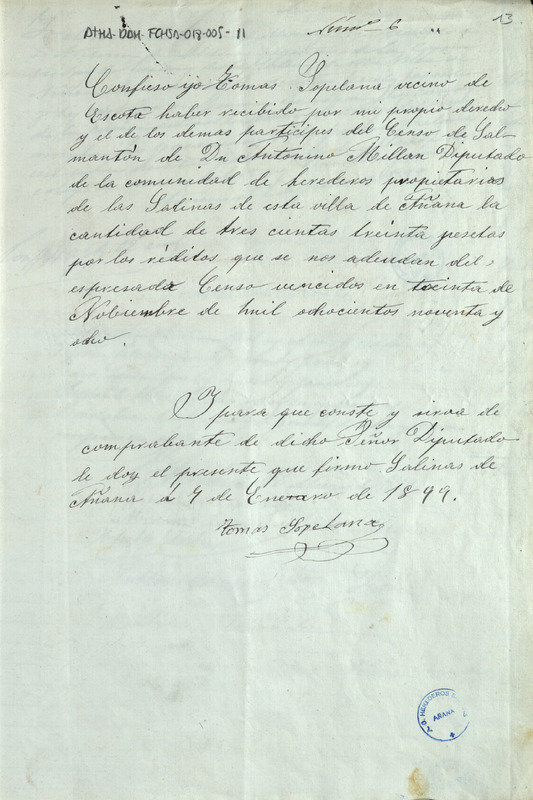 ATHA-DAH-FCHSA-018-005-11
Núm.º 6
13
Confieso yo Tomas Sopelana vecino de
Escota haber recibido por mi propio derecho
y el de los demas participes del Censo de Sal-
mantón de Dn Antonino Millan Diputado
de la comunidad de herederos propietarios
de las Salinas de esta villa de Añana la
cantidad de tres cientas treinta pesetas
por los réditos que se nos adeudan del
espresada Censo vencidos en treinta de
Nobiembre de mil odhocientos noventa y
odho.
I para que conste y sirva de
comprabante de dicho Señor Diputado
le doy el presente que firmo Salinas de
Añana á 7 de Enero de 1899.
Tomas Sopelana
HEREDEROS
AÑANA